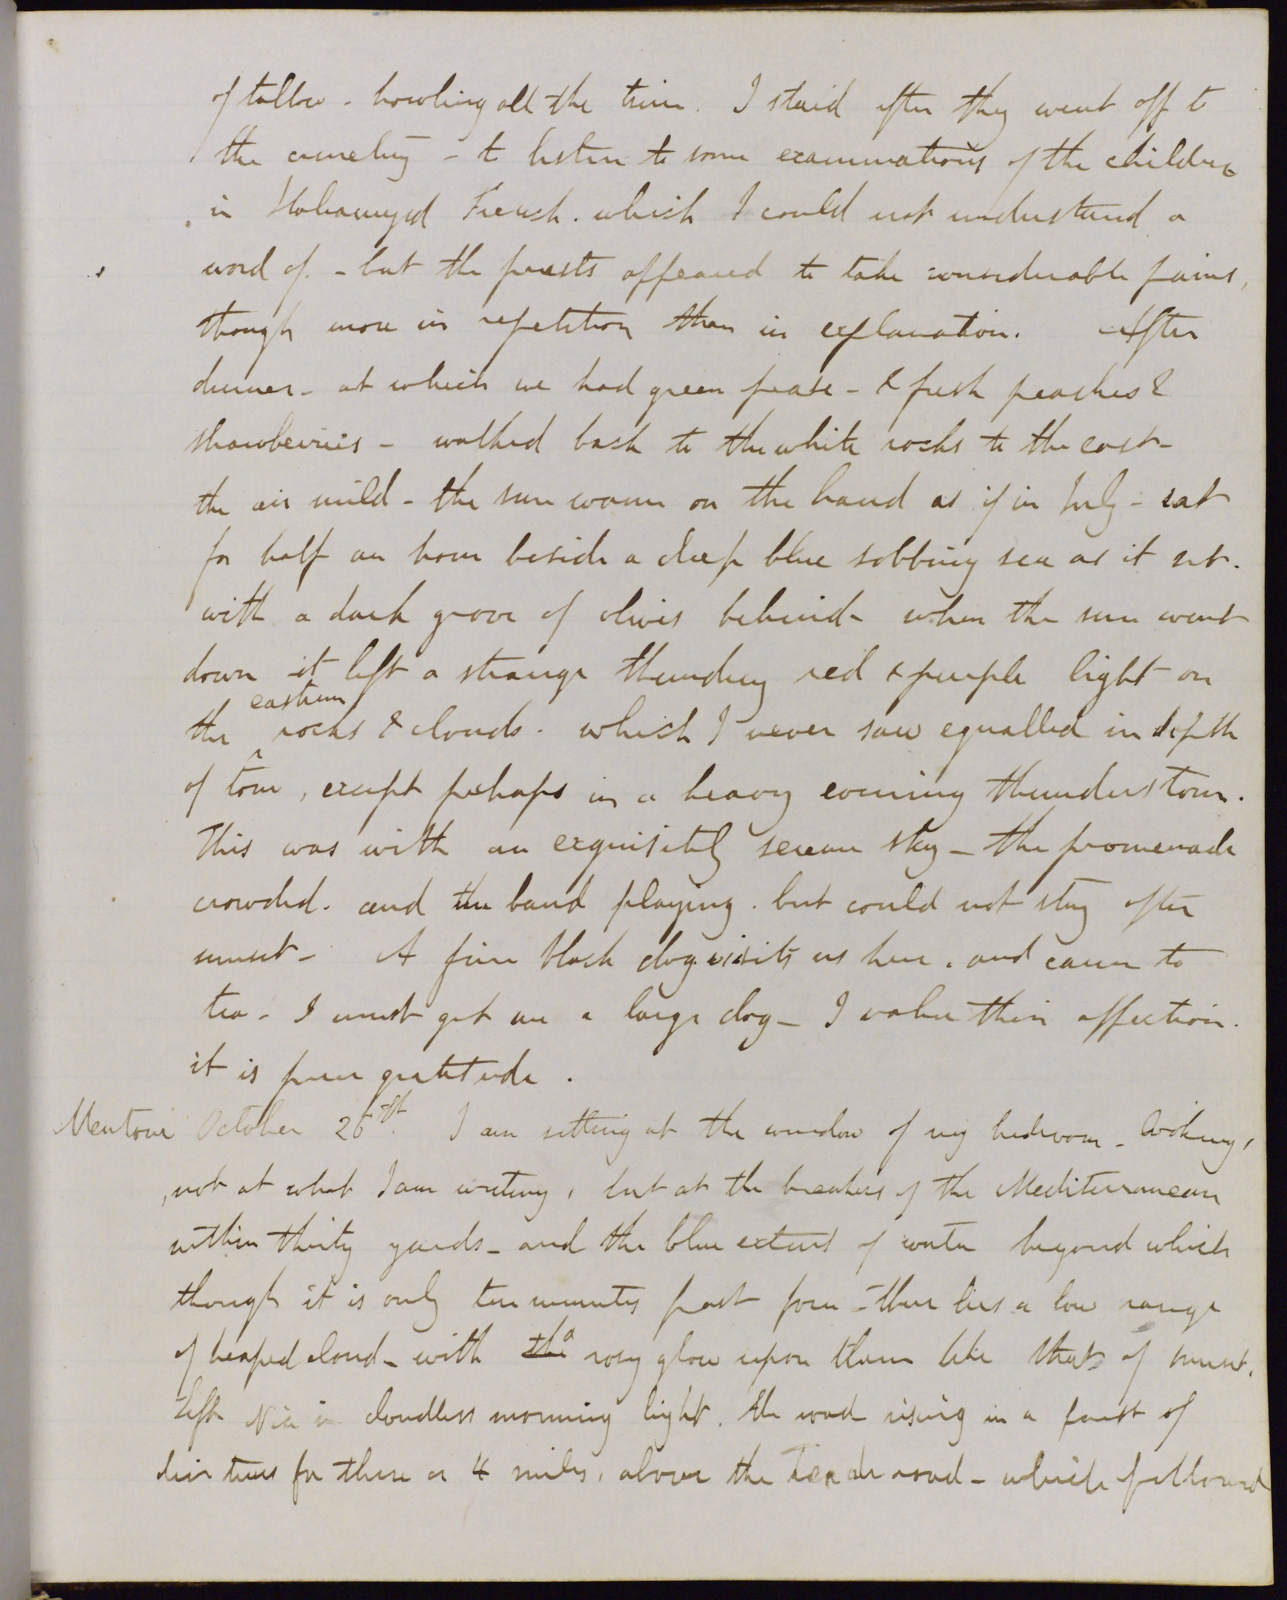 of tallow - howling all the time. I staid after they went off to
the cemetery - to listen to some examinations of the children
in French. which I could not understand a
word of. - but the priests appeared to take considerable pains,
though more in repetition than in explanation. After
dinner - at which we had green pease - & fresh peaches &
strawberries - walked back to the white rocks to the east -
the air mild - the sun warm on the hand as if in July - sat
for half an hour beside a deep blue sobbing sea as it set.
with a dark grove of olives behind - when the sun went
down it left a strange thundery red & purple light on
the eastern rocks & clouds. which I never saw equalled in depth
of tone, except perhaps in a heavy evening thunderstorm.
This was with an exquisitely serene sky - the promenade
crowded. and the band playing. but could not stay after
sunset - A fine black dog visits us here. and came to
tea - I must get me a large dog - I value their affection.
it is pure gratitude.
Mentone October 26th. I am sitting at the window of my bedroom - looking,
not at what I am writing, but at the breakers of the Mediterranean
within thirty yards - and the blue extent of water beyond which
though it is only ten minutes past four - there lies a low range
of heaped cloud - with the a rosy glow upon them like that of sunset.
Left Nice in cloudless morning light. the road rising in a forest of
olive trees for three or 4 miles, above the Tenda road - which followed